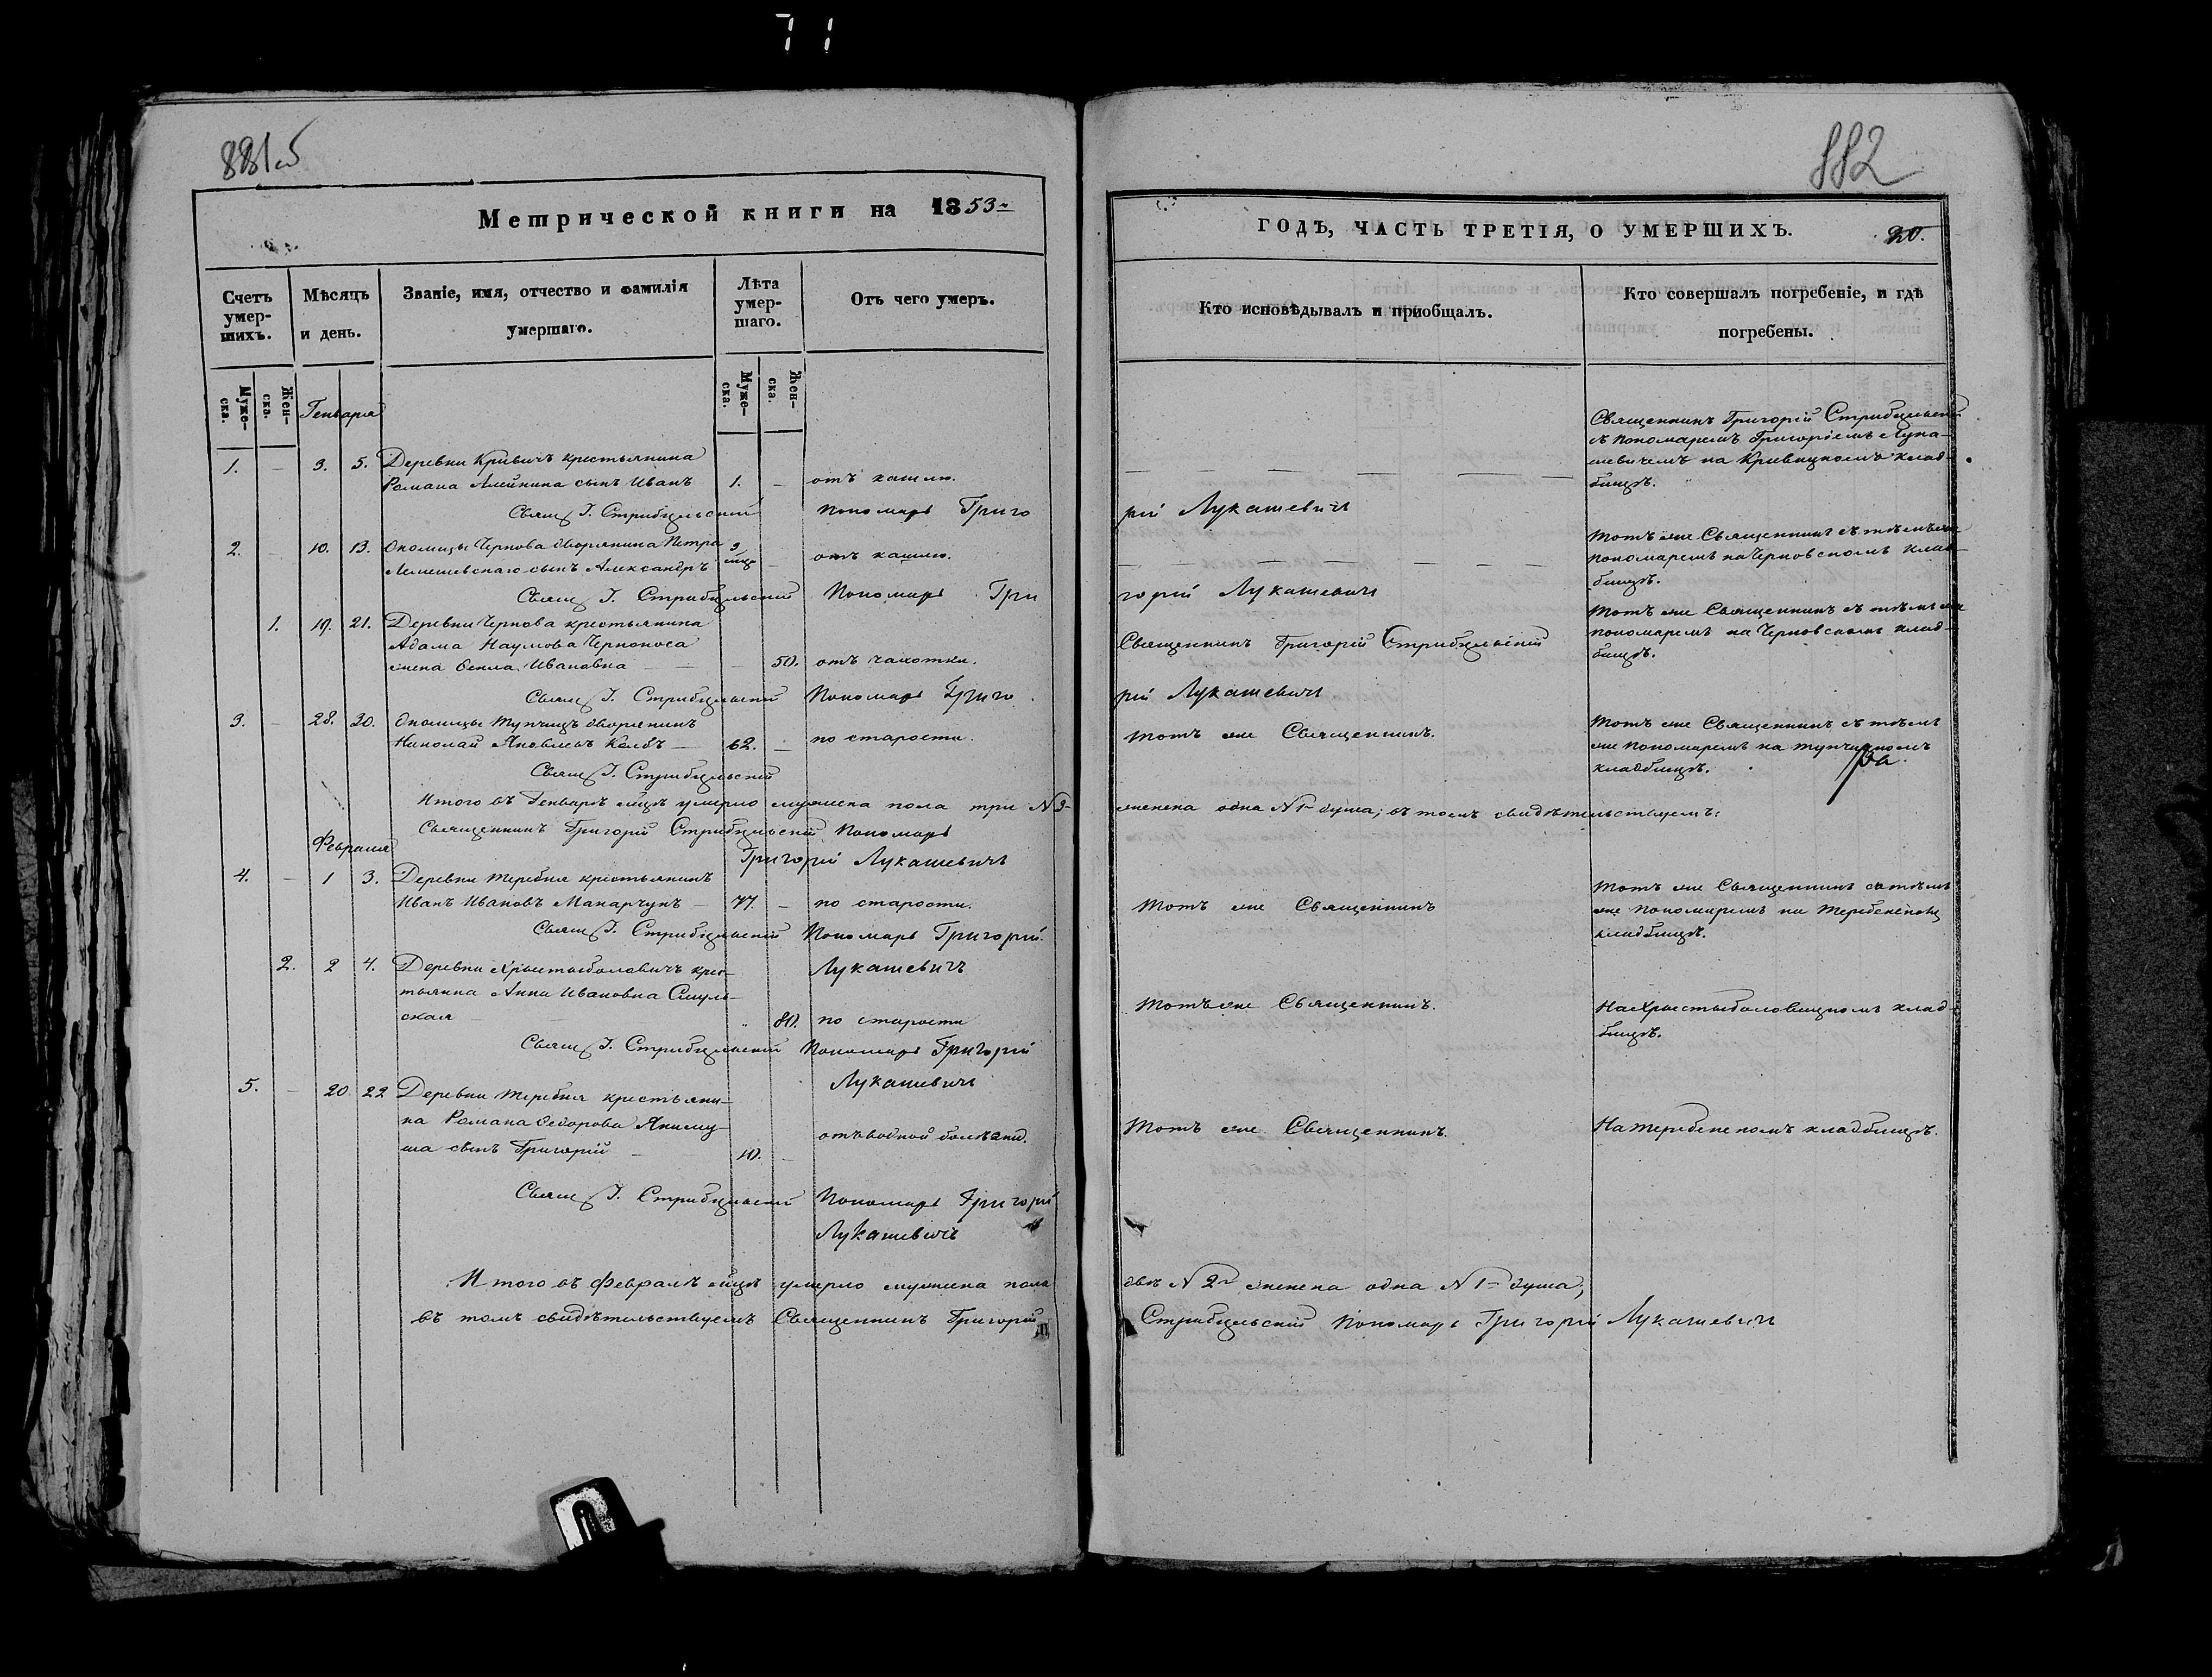 71
881об
882
Метрической книги на 1853-
ГОДЪ, ЧАСТЬ ТРЕТІЯ, О УМЕРШИХЪ.
20.
Счетъ умер-
шихъ.
Мѣсяцъ
и день.
Званіе, имя, отчество и фамилія
умершаго.
Лѣта
умер-
шаго.
Отъ чего умеръ.
Кто исповѣдывалъ и пріобщалъ.
Кто совершалъ погребеніе, и гдѣ
погребены.
Муже-
ска.
Жен-
ска.
Муже-
ска.
Жен-
ска.
Генваря
1. — 3. 5. Деревни Кривичъ крестьянина
Романа Алейника сынъ Иванъ 1. — отъ кашлю.
Священникъ Григорій Стрибульскій
съ пономаремъ Григоріемъ Лука-
шевичемъ на Кривицкомъ клад-
бищѣ.
Свящ. Г. Стрибульскій Пономарь Григо
рій Лукашевичъ
2. — 10. 13. Околицы Чернова дворянина Петра 3
Лемешевскаго сынъ Александръ мца — отъ кашлю.
Тотъ же Священникъ съ тѣмъ же
пономаремъ на Черновскомъ клад-
бищѣ.
Свящ. Г. Стрибульскій Пономарь Гри
горій Лукашевичъ
1. 19. 21. Деревни Чернова крестьянина
Адама Наумова Черноноса
жена Ѳекла Ивановна — — 50. отъ чахотки.
Священникъ Григорій Стрибульскій
Тотъ же Священникъ съ тѣмъ же
пономаремъ на Черновскомъ клад-
бищѣ.
Свящ. Г. Стрибульскій Пономарь Григо
рій Лукашевичъ
3. — 28. 30. Околицы Тупчицъ дворянинъ
Николай Яковлевъ Колбъ — 62. — по старости.
Тотъ же Священникъ.
Тотъ же Священникъ съ тѣмъ
же пономаремъ на тупчицкомъ
кладбищѣ.
Свящ. Г. Стрибульскій
Итого въ Генварѣ мцѣ умерло мужеска пола три N 3-
женска одна N 1- душа; въ томъ свидѣтельствуемъ:
Священникъ Григорій Стрибульскій Пономарь
Григорій Лукашевичъ
Февраля
4. — 1 3. Деревни Теребня крестьянинъ
Иванъ Ивановъ Макарчукъ — 77. — по старости.
Тотъ же Священникъ
Тотъ же Священникъ съ тѣмъ
же пономаремъ на
кладбищѣ.
Свящ. Г. Стрибульскій Пономарь Григорій
Лукашевичъ
2. 2 4. Деревни Христыболовичъ крес-
тьянка Анна Ивановна
ская — 80. по старости
Тотъ же Священникъ.
На Христыболовицкомъ клад-
бищѣ.
Свящ. Г. Стрибульскій Пономарь Григорій
Лукашевичъ
5. — 20. 22 Деревни Теребня крестьяни-
на Романа Ѳедорова
сынъ Григорій — 10. — отъ водной болѣзни.
Тотъ же Священникъ.
На кладбищѣ.
Свящ. Г. Стрибульскій Пономарь Григорій
Лукашевичъ
Итого въ февралѣ мцѣ умерло мужеска пола
двѣ N 2- женска одна N 1- душа;
въ томъ свидѣтельствуемъ Священникъ Григорій
Стрибульскій Пономарь Григорій Лукашевичъ